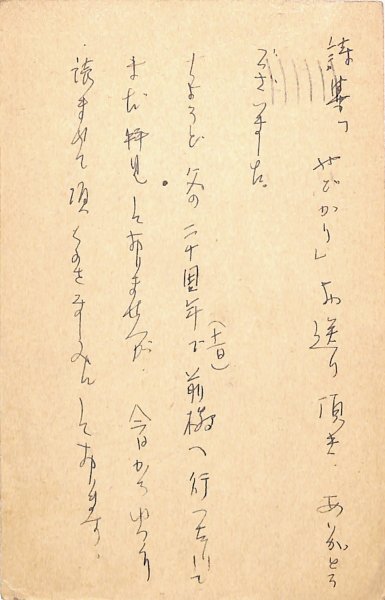 詩集「やどかり」お送り頂き、ありがとう
ございました。
ちょうど父の二十周年で(十一日)前橋へ行っていて
まだ拝見しておりませんが、今日からゆっくり
読ませて頂くのをたのしみにしております。